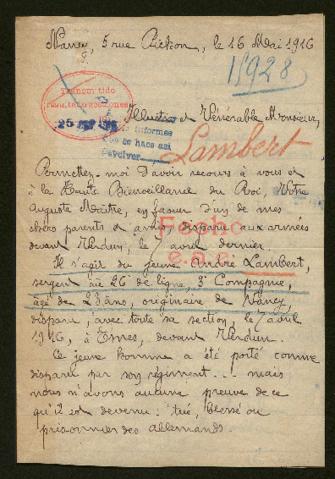 Nancy, 5 rue Pichon, le 16 Mai 1916
11928
Illustre et Vénérable Monsieur,
25
informes
que se hace así
devolver
Lambert
Permettez-moi d'avoir recours à vous et
à la Haute Bienveillance du Roi, Votre
Auguste Maître, en faveur d'un de mes
chers parents et amis disparu aux armées
devant Verdun, le 7 avril dernier.
Il s'agit du jeune André Lambert,
sergent au 26e de ligne, 3e Compagnie,
âgé de 23 ans, originaire de Nancy,
disparu, avec toute sa section, le 7 avril
1916, à Esnes, devant Verdun.
Ce jeune homme a été porté comme
disparu par son régiment... mais
nous n'avons aucune preuve de ce
qu'il est devenu : tué, blessé ou
prisonnier des allemands.